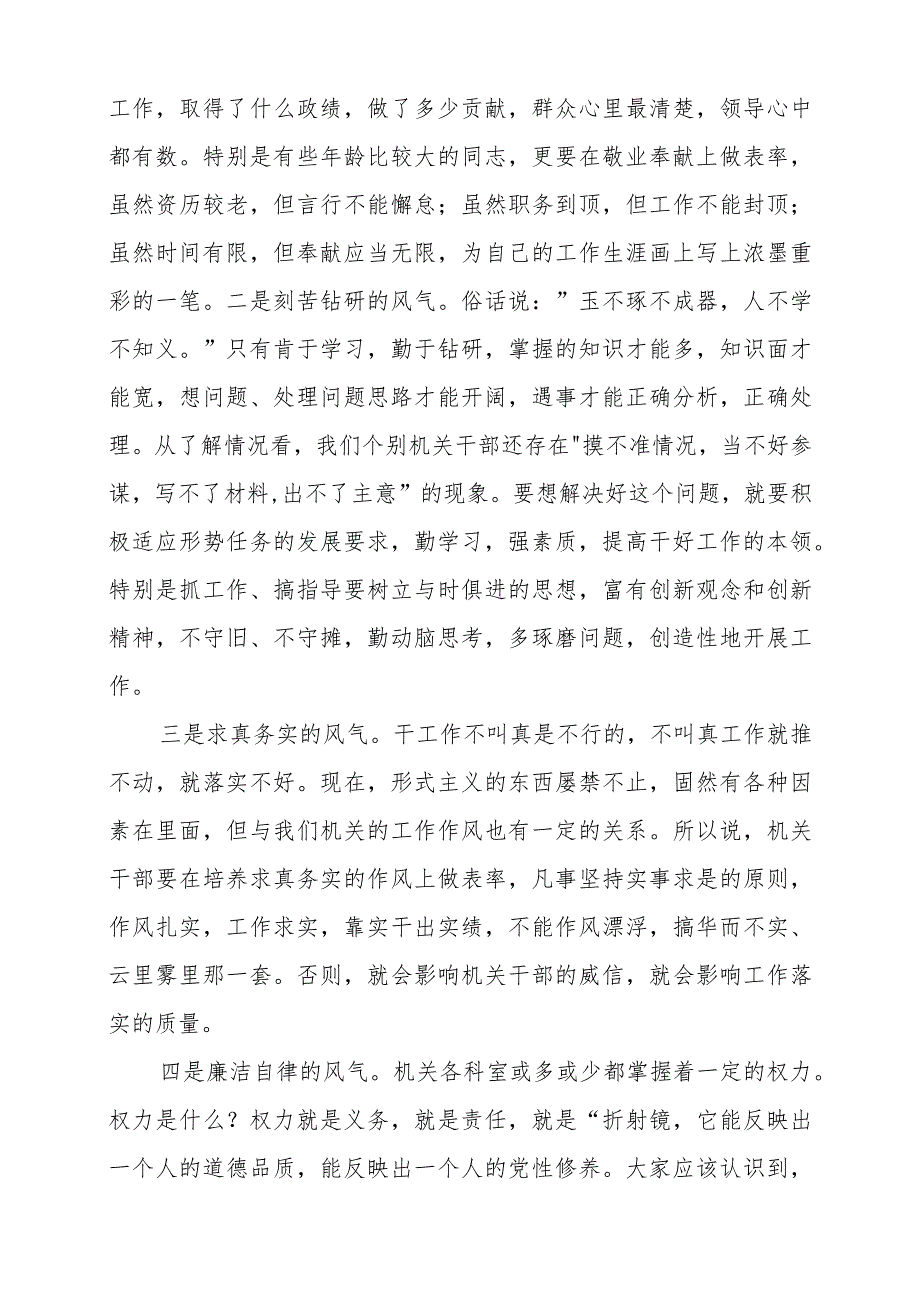 工作，取得了什么政绩，做了多少贡献，群众心里最清楚，领导心中
都有数。特别是有些年龄比较大的同志，更要在敬业奉献上做表率，
虽然资历较老，但言行不能懈怠；虽然职务到顶，但工作不能封顶；
虽然时间有限，但奉献应当无限，为自己的工作生涯画上写上浓墨重
彩的一笔。二是刻苦钻研的风气。俗话说：”玉不琢不成器，人不学
不知义。”只有肯于学习，勤于钻研，掌握的知识才能多，知识面才
能宽，想问题、处理问题思路才能开阔，遇事才能正确分析，正确处
理。从了解情况看，我们个别机关干部还存在"摸不准情况，当不好参
谋，写不了材料,出不了主意”的现象。要想解决好这个问题，就要积
极适应形势任务的发展要求，勤学习，强素质，提高干好工作的本领。
特别是抓工作、搞指导要树立与时俱进的思想，富有创新观念和创新
精神，不守旧、不守摊，勤动脑思考，多琢磨问题，创造性地开展工
作。
三是求真务实的风气。干工作不叫真是不行的，不叫真工作就推
不动，就落实不好。现在，形式主义的东西屡禁不止，固然有各种因
素在里面，但与我们机关的工作作风也有一定的关系。所以说，机关
干部要在培养求真务实的作风上做表率，凡事坚持实事求是的原则，
作风扎实，工作求实，靠实干出实绩，不能作风漂浮，搞华而不实、
云里雾里那一套。否则，就会影响机关干部的威信，就会影响工作落
实的质量。
四是廉洁自律的风气。机关各科室或多或少都掌握着一定的权力。
权力是什么？权力就是义务，就是责任，就是“折射镜，它能反映出
一个人的道德品质，能反映出一个人的党性修养。大家应该认识到，